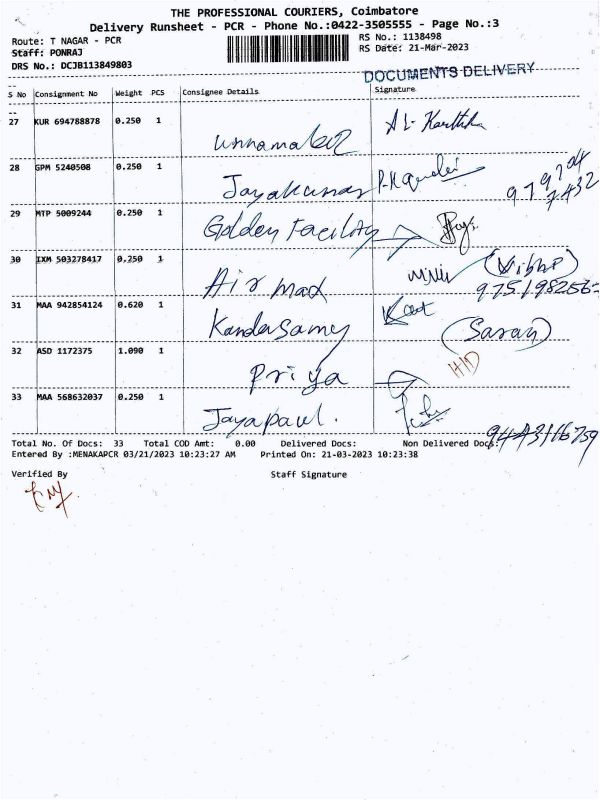 THE PROFESSIONAL COURIERS, Coimbatore
Delivery Runsheet - PCR - Phone No.:0422-3505555 - Page No.:3
Route: T NAGAR - PCR
RS No.: 1138498
Staff: PONRAJ
RS Date: 21-Mar-2023
DRS No.: DCJB113849803
DOCUMENTS DELIVERY
S No Consignment No Weight PCS Consignee Details Signature
27 KUR 694788878 0.250 1
28 GPM 5240508 0.250 1 Jayakumar
29 MTP 5009244 0.250 1 Golden Facility
30 IXM 503278417 0.250 1 Air max
31 MAA 942854124 0.620 1 Kandasamy (Saran)
32 ASD 1172375 1.090 1 Priya H/D
33 MAA 568632037 0.250 1 Jayapaul.
Total No. Of Docs: 33 Total COD Amt: 0.00 Delivered Docs: Non Delivered Docs:
Entered By :MENAKAPCR 03/21/2023 10:23:27 AM Printed On: 21-03-2023 10:23:38
Verified By Staff Signature